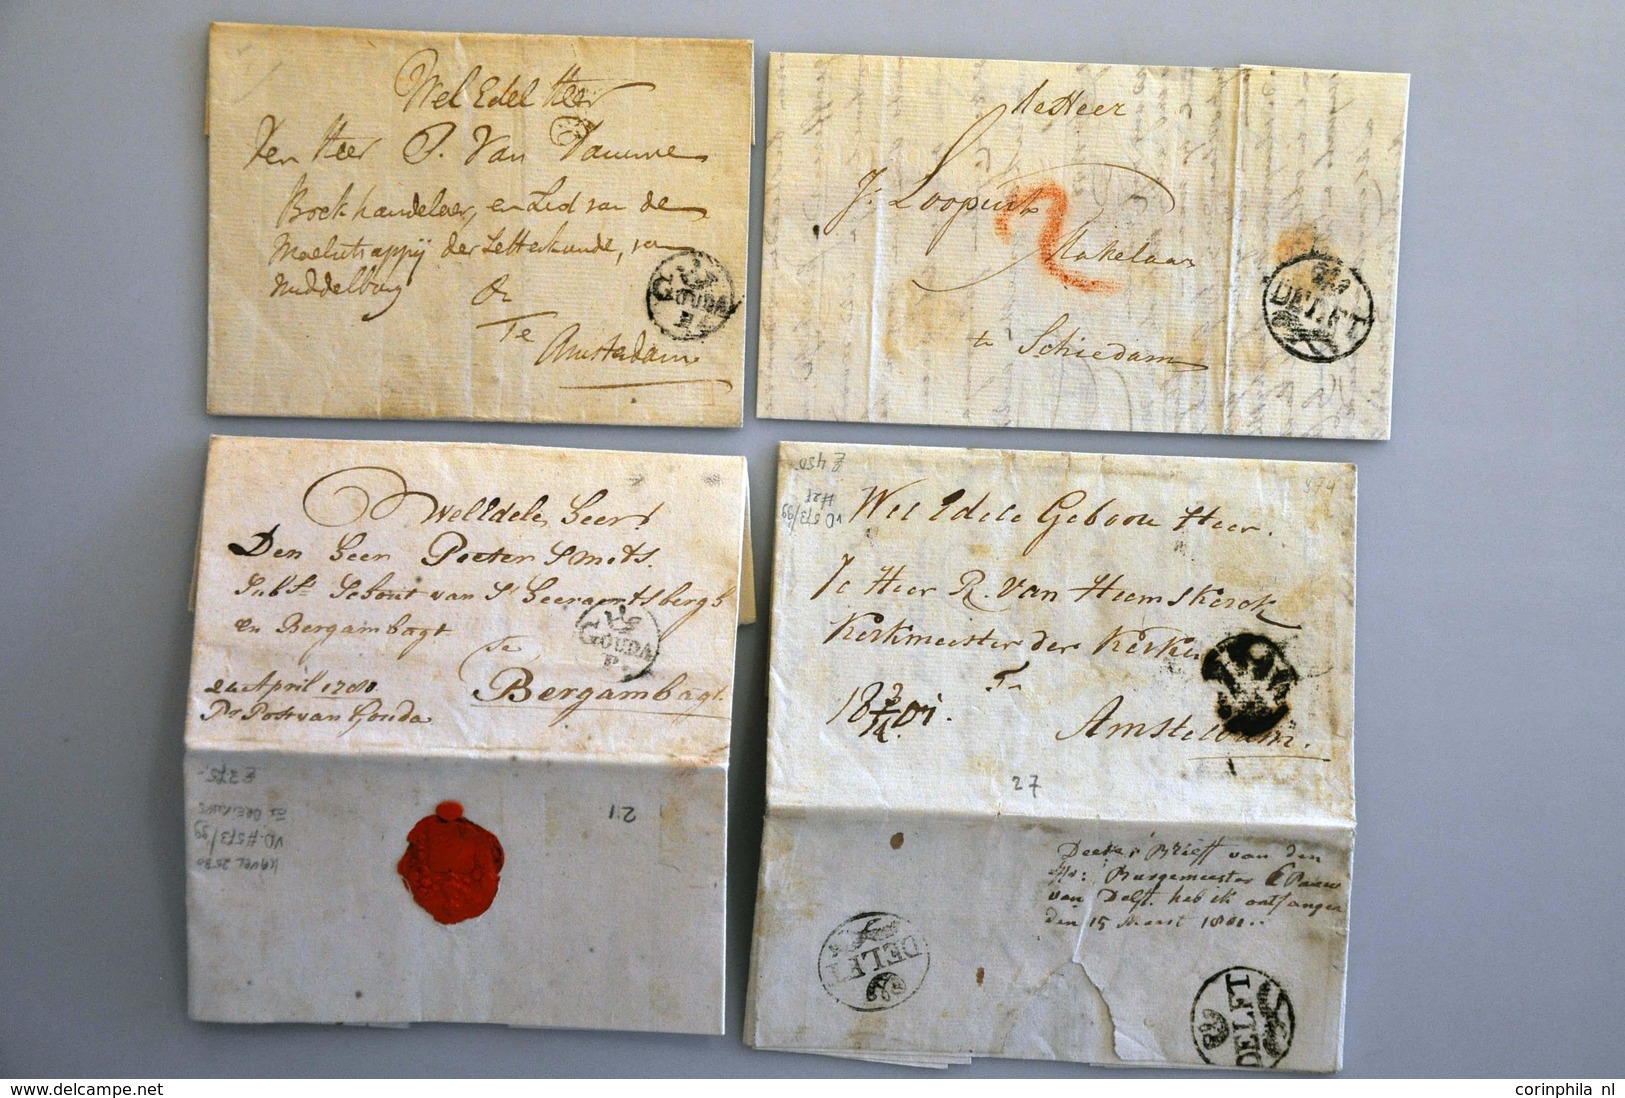 Wel Edel Heer
Den Heer P. Van Damme
Boekhandelaer, en Lid van de
Maetschappij der Letterkunde, van
Middelburg
Te
Amsterdam
GOUDA
P
MeHeer
J. Loopuit
2
Makelaar
te Schiedam
3
DELFT
WelEdele Heer!
Den Heer Pieter Smits.
Subst. Schout van S. Geeraertsbergh
en Bergambagt
Te
Bergambagt.
24 April 1780.
Pr Post van Gouda
GOUDA
P.
£ 375.-
VD #573/99
KAVEL 2530
21
£ 450.
VD 573/99
#21
974
Wel Edele Geboore Heer.
De Heer R. Van Heemskerck
Kerkmeester der Kerke
Te
Amsteldam.
18 3/14 01.
27
Deese Brieff van den
Hr: Burgemeester Paauw
van Delft. heb ik ontfangen
den 15 Maart 1801..
DELFT
DELFT
www.delcampe.net
corinphila nl